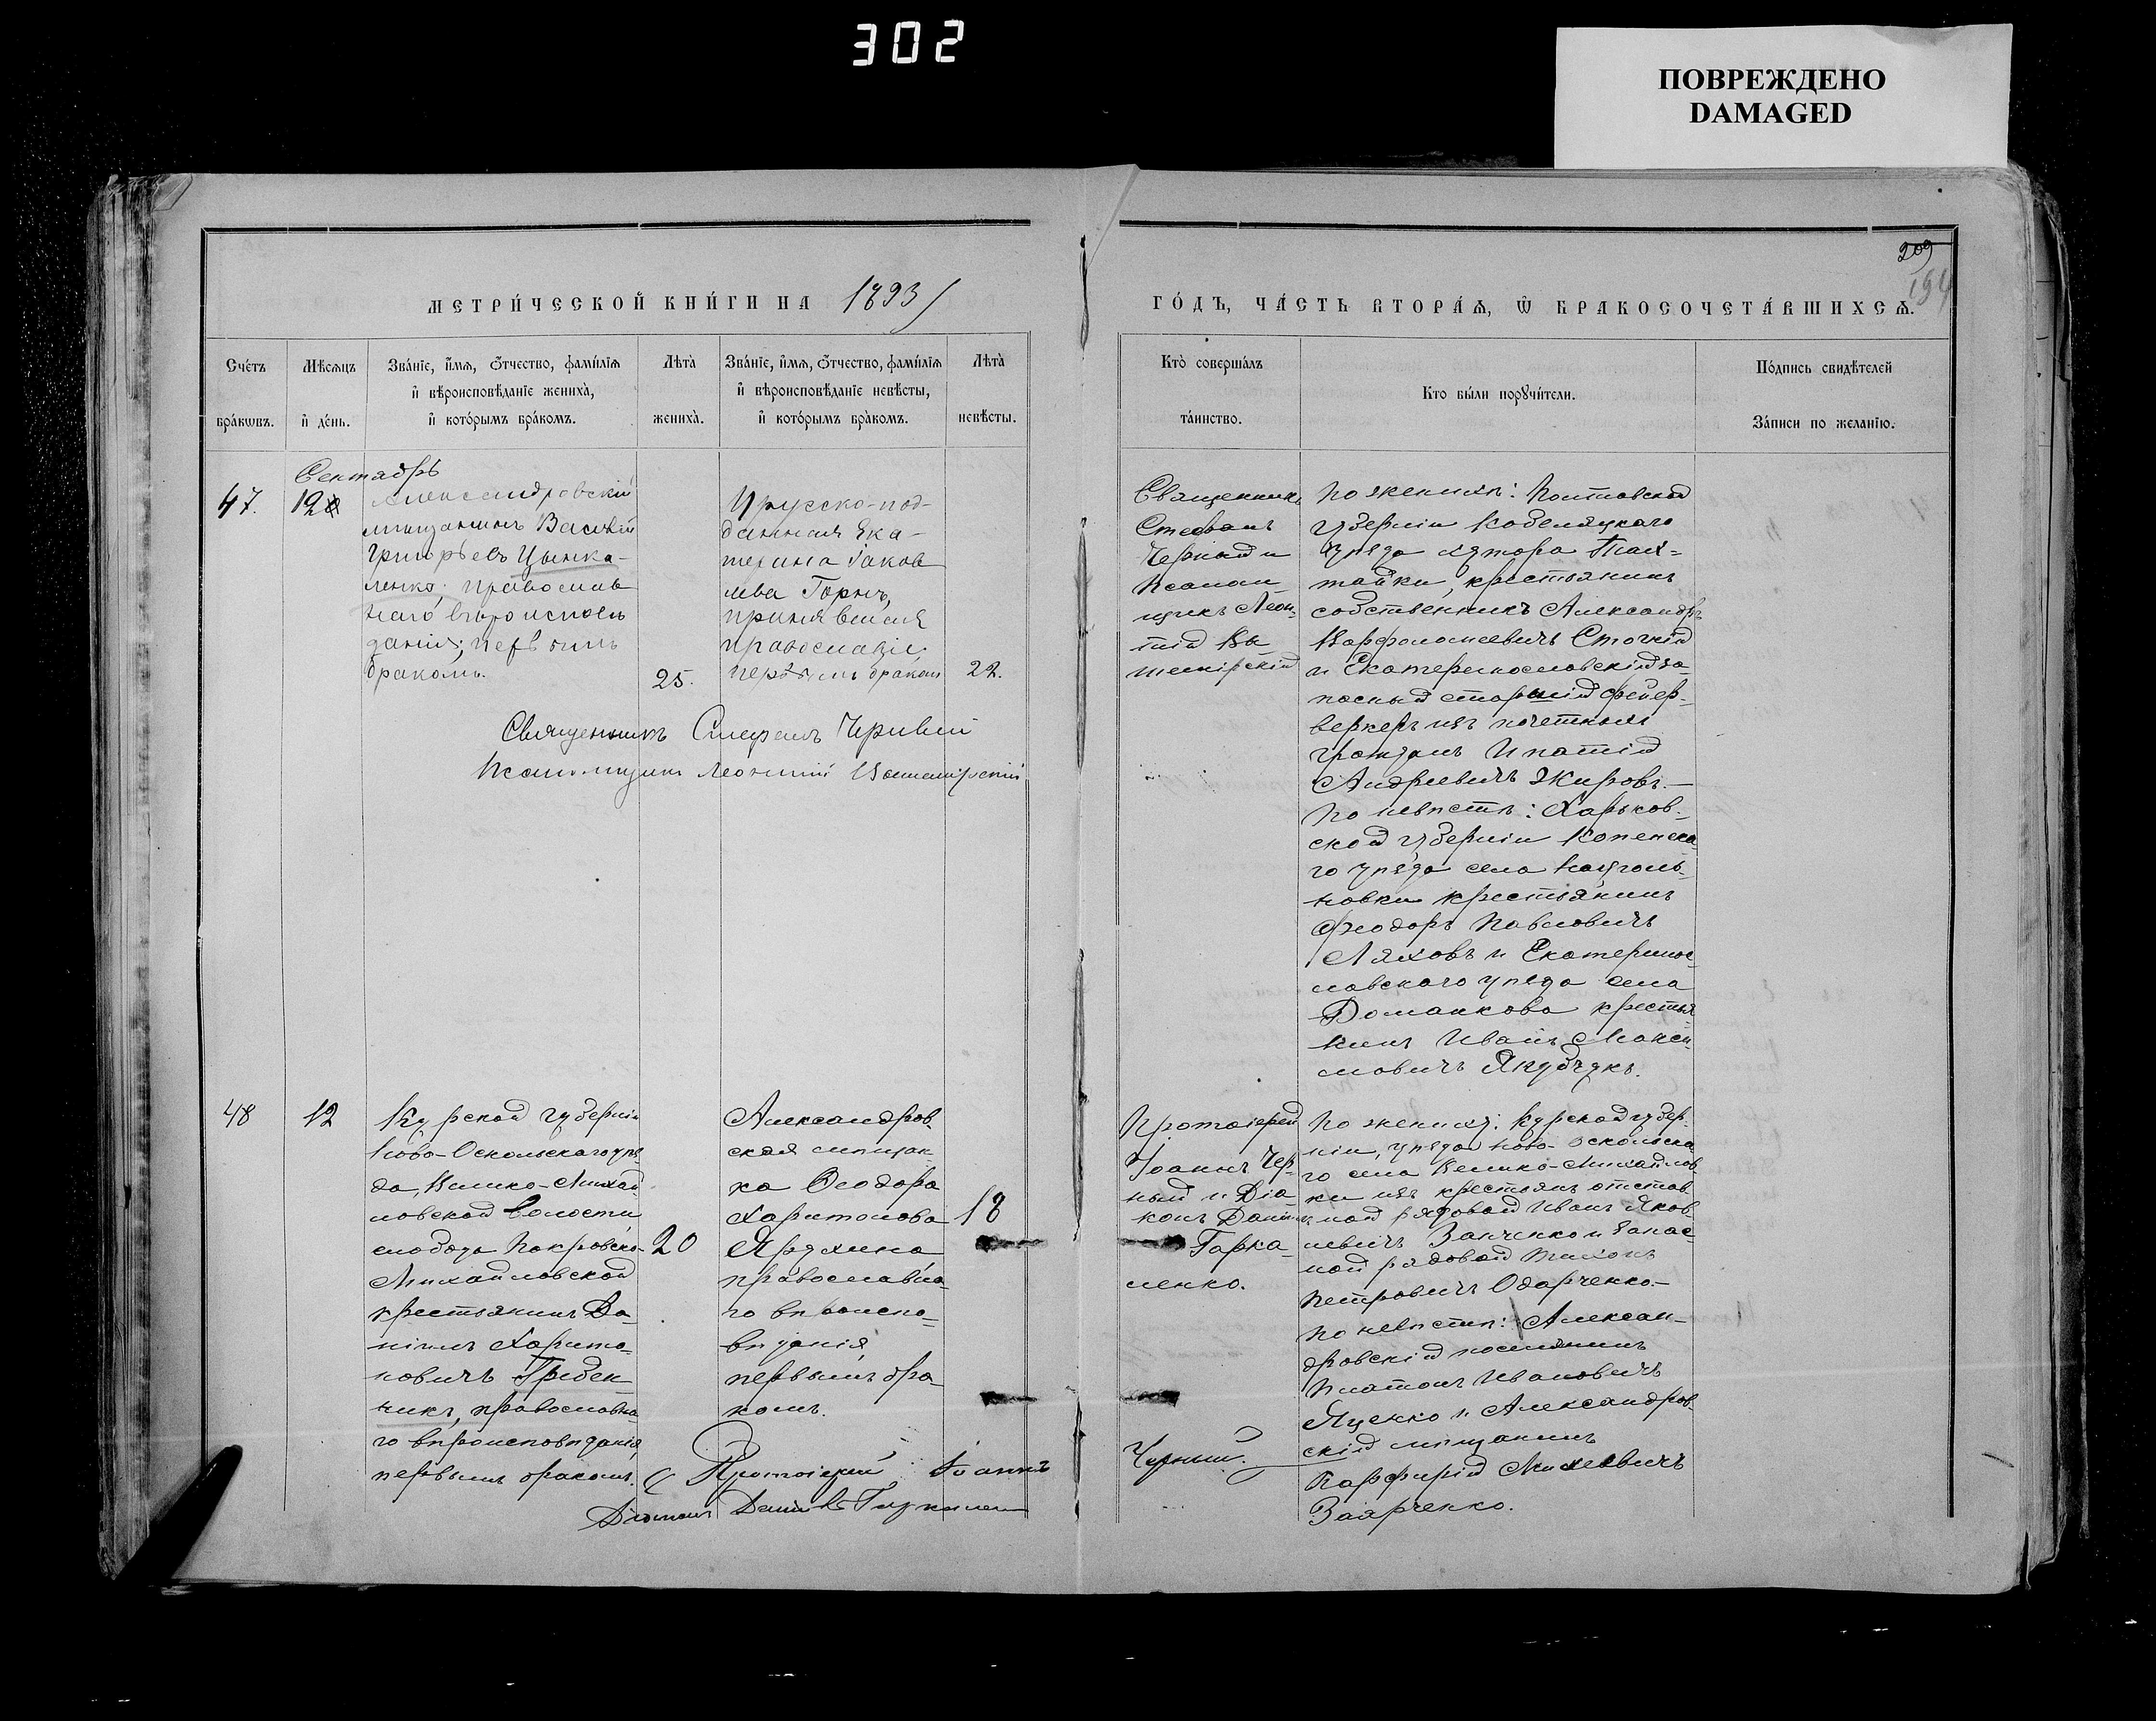 302
ПОВРЕЖДЕНО
DAMAGED
209
194
МЕТРИ́ЧЕСКОЙ КНИ́ГИ НА 1893
ГО́ДЪ, ЧА́СТЬ ВТОРА́Ѧ, Ѡ҆ БРАКОСОЧЕТА́ВШИХСѦ.
Сче́тъ
бра́кѡвъ.
Мѣ́сѧцъ
и҆ де́нь.
Зва́нїе, и҆́мѧ, ѻ҆́тчество, фами́лїѧ
и҆ вѣроисповѣ́данїе жениха̀,
и҆ кото́рымъ бра́комъ.
Лѣта̀
жениха̀.
Зва́нїе, и҆́мѧ, ѻ҆́тчество, фами́лїѧ
и҆ вѣроисповѣ́данїе невѣ́сты,
и҆ кото́рымъ бра́комъ.
Лѣта̀
невѣ́сты.
Кто̀ соверша́лъ
та́инство.
Кто бы́ли порꙋчи́тели.
По́дпись свидѣ́телей
За́писи по жела́нїю.
Сентябрь
47.
12
Александровскій
мѣщанинъ Василій
Григорьевъ Цынка-
ленко, православ
наго вѣроисповѣ
данія; первымъ
бракомъ.
25.
Прусско-под-
данная Ека-
терина Іаков
лева Горнъ,
принявшая
православіе
первымъ бракомъ
22.
Священникъ Стефанъ
Псаломщикъ Леонтій
Священникъ
Стефанъ
и
Псалом
щикъ Леон-
тій
По женихѣ: Полтавской
губерніи Кобеляцкаго
уѣзда хутора
крестьянинъ
собственникъ Александръ
Варфоломеевичъ
и Екатеринославскій за-
пасный старшій фейер-
веркеръ изъ почетныхъ
гражданъ Ипатій
Андреевичъ Жировъ.—
По невѣстѣ: Харьков-
ской губерніи
го уѣзда села
новки крестьянинъ
Феодоръ Павловичъ
Ляховъ и Екатеринос-
лавскаго уѣзда села
Романкова крестья
нинъ Иванъ Макси-
мовичъ Якубчукъ.
48
12
Курской губерніи
Ново-Оскольскаго уѣз-
да, Велико-Михай
ловской волости
слобода Покровско-
Михайловской
крестьянинъ Да-
ніилъ Харито-
новичъ Гребен-
никъ, православна
го вѣроисповѣданія,
первымъ бракомъ.
20
Александров
ская мѣщан-
ка Ѳеодора
Харитонова
Ярухина
православна-
го вѣроиспо-
вѣданія,
первымъ бра-
комъ.
18
Протоіерей Іоаннъ
Черный.
Діаконъ Даніилъ Гаркаленко
Протоіерей
Іоаннъ Чер-
ный и Діа-
конъ Даніилъ
Гарка-
ленко.
По женихѣ: Курской губер-
ніи, уѣзда Ново-Оскольска
го села Велико-Михайлов
ки изъ крестьянъ отстав
ной рядовой Иванъ Яков-
левичъ Занченко и запас-
ной рядовой Тихонъ
Петровичъ Одарченко.—
По невѣстѣ: Алексан-
дровскій поселянинъ
Платонъ Ивановичъ
Яценко и Александров-
скій мѣщанинъ
Парфирій Михеевичъ
Заярченко.